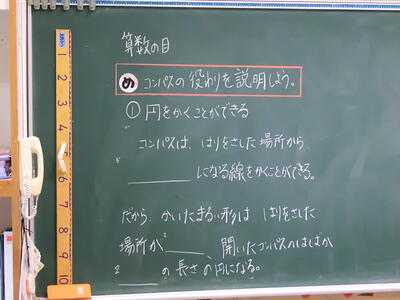 算数の目
め コンパスの役わりを説明しよう。
① 円をかくことができる
コンパスは、はりをさした場所から
になる線をかくことができる。
だから、かいたまるい形は、はりをさした
場所が 2 、開いたコンパスのはばが
2 の長さの円になる。
1
2
3
4
5
6
7
8
9
10